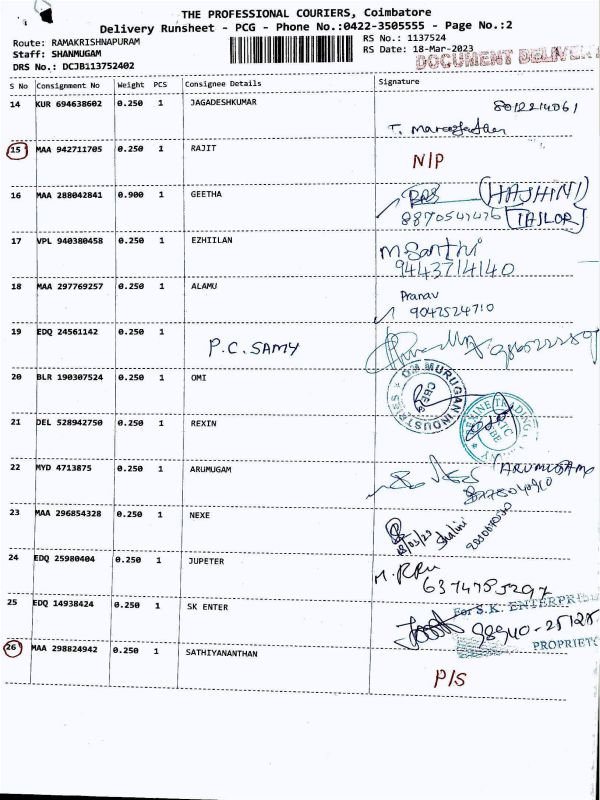 THE PROFESSIONAL COURIERS, Coimbatore
Delivery Runsheet - PCG - Phone No.:0422-3505555 - Page No.:2
Route: RAMAKRISHNAPURAM
RS No.: 1137524
Staff: SHANMUGAM
RS Date: 18-Mar-2023
DRS No.: DCJB113752402
DOCUMENT DELIVERY
S No Consignment No Weight PCS Consignee Details Signature
14 KUR 694638602 0.250 1 JAGADESHKUMAR
8012214061
15 MAA 942711705 0.250 1 RAJIT N/P
16 MAA 288042841 0.900 1 GEETHA (HASHINI)
8870547476 TAILOR
17 VPL 940380458 0.250 1 EZHIILAN M. Santhi
9443714140
18 MAA 297769257 0.250 1 ALAMU Pranav
9047524710
19 EDQ 24561142 0.250 1 P.C. SAMY
20 BLR 190307524 0.250 1 OMI OM MURUGAN INDUSTRIES
21 DEL 528942750 0.250 1 REXIN
22 MYD 4713875 0.250 1 ARUMUGAM ARUMUGAM
23 MAA 296854328 0.250 1 NEXE
18/03/23 Shalini
24 EDQ 25980404 0.250 1 JUPETER
6374785297
25 EDQ 14938424 0.250 1 SK ENTER For S.K. ENTERPRISE
98940-25125
PROPRIETO
26 MAA 298824942 0.250 1 SATHIYANANTHAN P/S